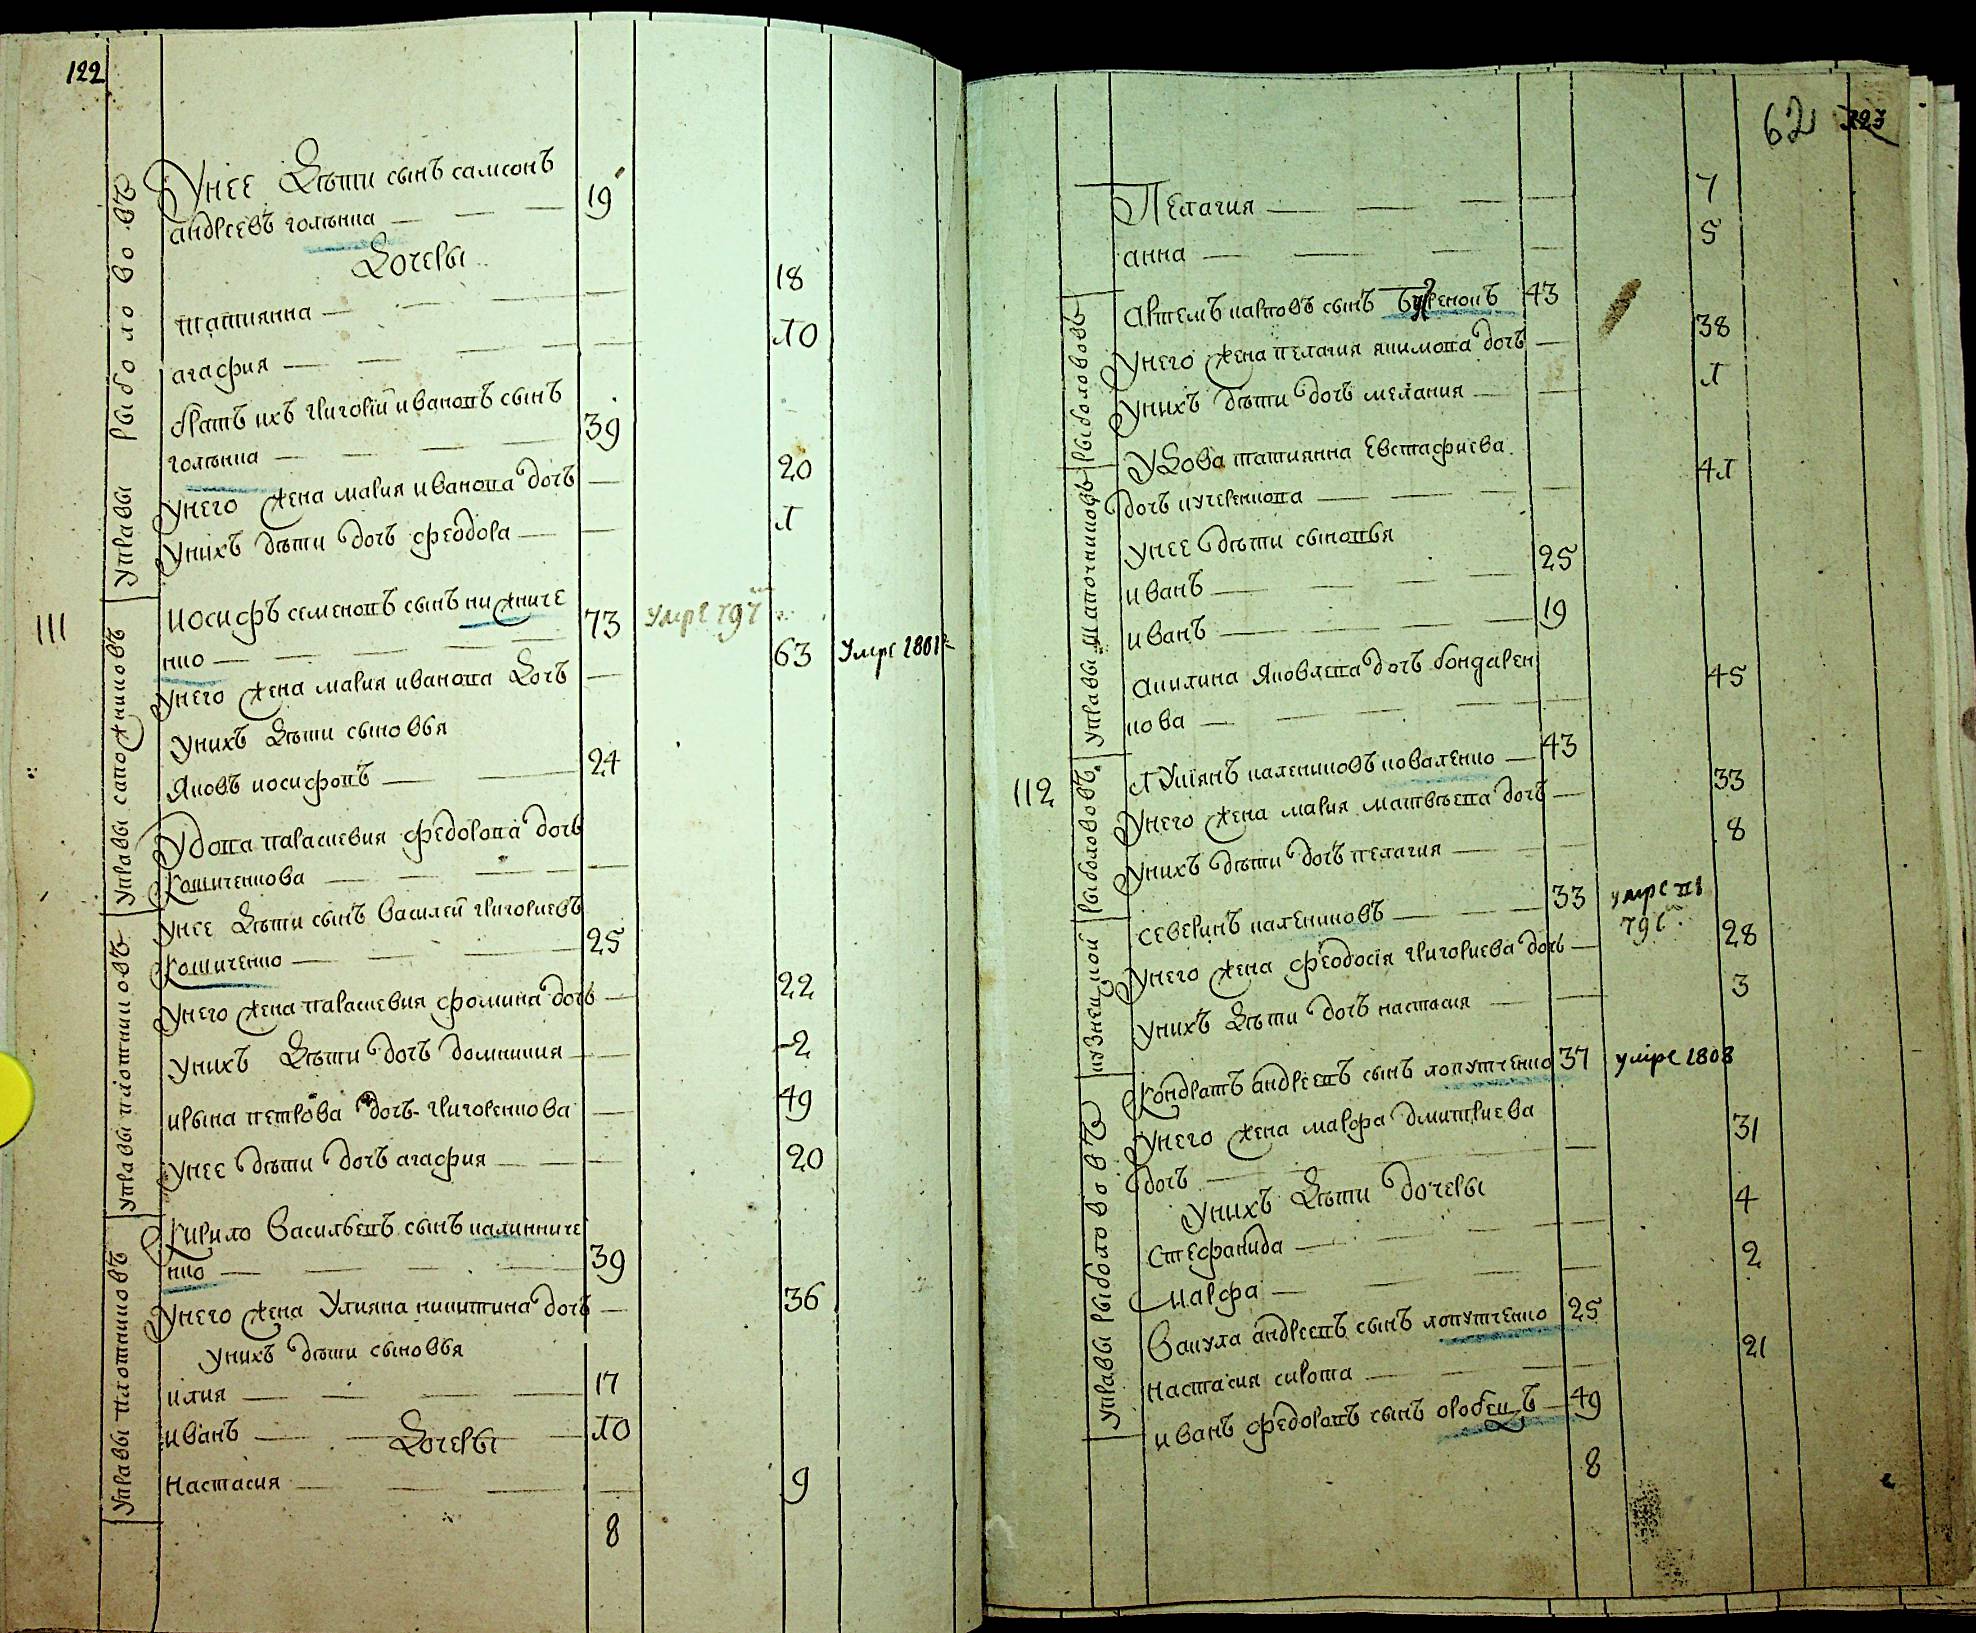 122
Рыболововъ
Управы
У нее Дѣти сынъ самсонъ 19
андреевъ голѣнка
Дочеры
татиянна 18
агафия 10
братъ ихъ григорїй ивановъ сынъ
голѣнка 39
у него жена мария иванова дочь 20
у нихъ дѣти дочь феодора 1
111
Управы сапожниковъ
Иосифъ семеновъ сынъ нижниче
нко 73 умре 797
у него жена мария иванова Дочь 63 Умре 1801
у нихъ Дѣти сыновья
Яковъ иосифовъ 24
Удова параскевия федорова дочь
Кошиченкова
у нее Дѣти сынъ василей григориевъ
Управы плотниковъ
Кошиченко 25
у него жена параскевия фомина дочь 22
у нихъ Дѣти дочь домникия 2
ирына петрова дочь григоренкова 49
у нее дѣти дочь агафия 20
Управы плотниковъ
Кирило Васильевъ сынъ калинниче
нко 39
у него жена Улияна никитина дочь 36
у нихъ дѣти сыновья
илия 17
иванъ 10
Дочеры
Настасия 9
8
62 123
Пелагия 7
анна 5
Рыболововъ
Артемъ карповъ сынъ 43
у него жена пелагия якимова дочь 38
у нихъ дѣти дочь мелания 1
Управы Шапочниковъ
Удова татиянна Евстафиева
дочь кучеренкова 41
у нее дѣти сыновья
иванъ 25
иванъ 19
акилина Яковлева дочь бондарен
кова 45
112
Рыболововъ
лУкїянъ калениковъ коваленко 43
у него жена мария матвѣева дочь 33
у нихъ дѣти дочь пелагия 8
кузнецкой
северинъ калениковъ 33 умре в
791
у него жена феодосїя григориева дочь 28
у нихъ Дѣти дочь настасия 3
Управы Рыболововъ
Кондратъ андреевъ сынъ лопутченко 37 умре 1808
у него жена марфа дмитриева
дочь 31
у нихъ Дѣти дочеры
Стефанида 4
марфа 2
Вакула андреевъ сынъ лопутченко 25
Настасия сирота 21
иванъ федоровъ сынъ оробецъ 49
8